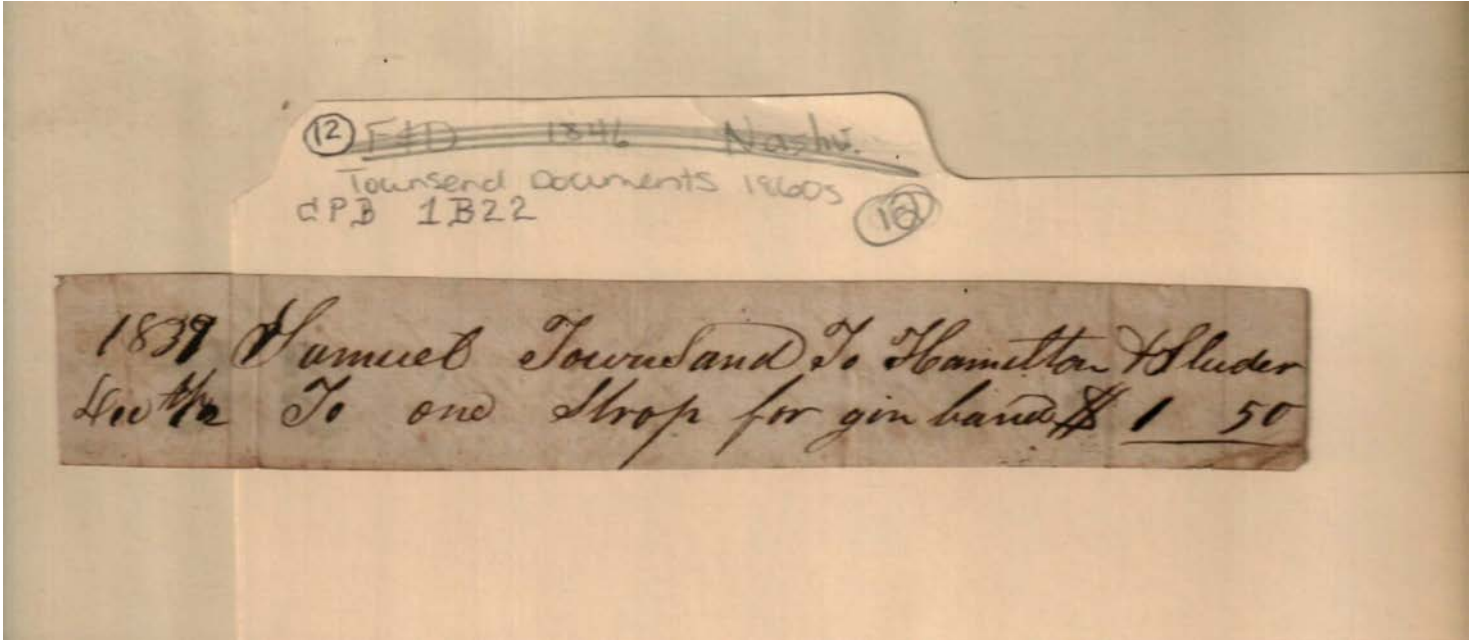 12 F+D 1846 Nashv.
Townsend Documents 1860s
CPB 1B22
1839 Samuel Townsand To Hamilton & Sluder
Dec To one Strop for gin band $ 1 50